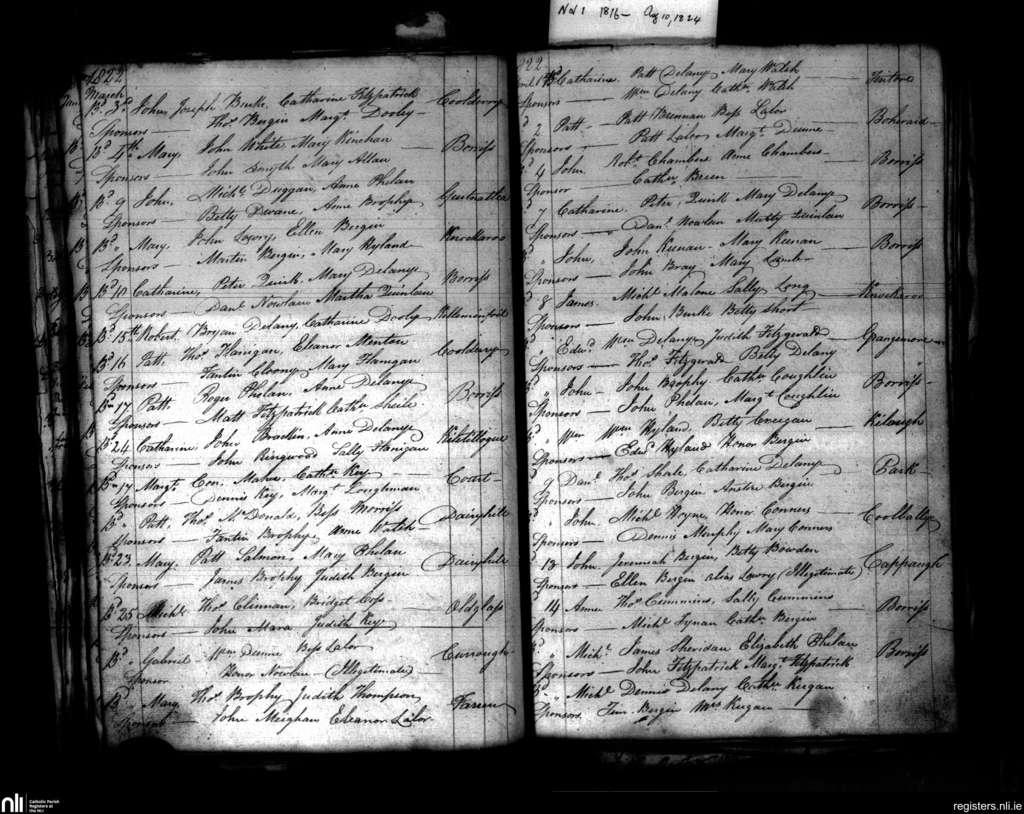 Nov 1 1816 - Aug 10, 1824
1822
March
Bd 3d John, Joseph Burke, Catharine Fitzpatrick Coolderry
Sponsors — Thos Bergin Margt Dooley
Bd 4th Mary, John White, Mary Kinehan Borriss
Sponsors — John Smyth Mary Allan
Bd 9 John, Michl Duggan, Anne Phelan
Sponsors — Betty Dwane, Anne Brophy
Bd " Mary, John Lowry, Ellen Bergin Knockaroo
Sponsors — Martin Bergin, Mary Hyland
Bd 10 Catharine, Peter Quirk, Mary Delany Borriss
Sponsors — Danl Nowlan Martha Quinlan
Bd 15th Robert, Bryan Delany, Catharine Dooly
Bd 16 Patt, Thos Flanigan, Eleanor Coolderry
Sponsors — Fantin Mary Flanigan
Bd 17 Patt, Roger Phelan, Anne Delany Borriss
Sponsors — Matt Fitzpatrick Cathn Sheile
Bd 24 Catharine John Brackin, Anne Delany
Sponsors — John Ringwood Sally Flanigan
Bd 17 Margt Con. Maher, Cathn Key Court
Sponsors — Dennis Key, Margt Loughman
Bd " Patt, Thos McDonald, Bess Morriss Dairyhill
Sponsors — Fantin Brophy, Anne Walsh
Bd 23 Mary, Patt Salmon, Mary Phelan Dairyhill
Sponsors — James Brophy Judith Bergin
Bd 25 Michl Thos Clinnan, Bridget Coss Oldglass
Sponsors — John Mara Judith Key
Bd " Gabriel Wm Dunne Bess Lalor Curraugh
Sponsor Honor Nowlan — (Illegitimate)
Bd " Mary Thos Brophy Judith Thompson
Sponsors — John Meighan Eleanor Lalor
Catharine Patt Delany Mary Walsh Tintore
Sponsors — Wm Delany Cathn Walsh
2 Patt — Patt Brennan Bess Lalor Boherard
Sponsors — Patt Lalor Margt Dunne
4 John, Robt Chambers Anne Chambers Borriss
Sponsor Cathn Breen
7 Catharine Peter Quirk Mary Delany Borriss
Sponsors — Danl Nowlan Matty Quinlan
" John, John Keenan Mary Keenan Borriss
Sponsors — John Bray Mary Lamb
8 James Michl Malone Sally Long Knockaroo
Sponsors — John Burke Betty Short
" Edwd Wm Delany Judith Fitzgerald Grangemore
Sponsors — Thos Fitzgerald Betty Delany
" John — John Brophy Cathn Coughlin Borriss
Sponsors — John Phelan, Margt Coughlin
" Wm Wm Hyland, Betty Kilough
Sponsors — Edwd Hyland Honor Bergin
9 Danl Thos Shale Catharine Delany Park
Sponsors — John Bergin Anstie Bergin
" John, Michl Hoyne, Honor Connors Coolbally
Sponsors — Dennis Murphy Mary Connors
13 John, Jeremiah Bergin, Betty Bowden Cappaugh
Sponsors — Ellen Bergin alias Lowry (Illegitimate)
14 Anne Thos Cummins, Sally Cummins Borriss
Sponsors — Michl Lynan Cathn Bergin
" Michl James Sheridan Elizabeth Phelan Borriss
Sponsors — John Fitzpatrick Margt Fitzpatrick
" Michl Dennis Delany Cathn Keegan
Sponsors Tim. Bergin Mrs Keegan
nli Catholic Parish
Registers at
the NLI
registers.nli.ie